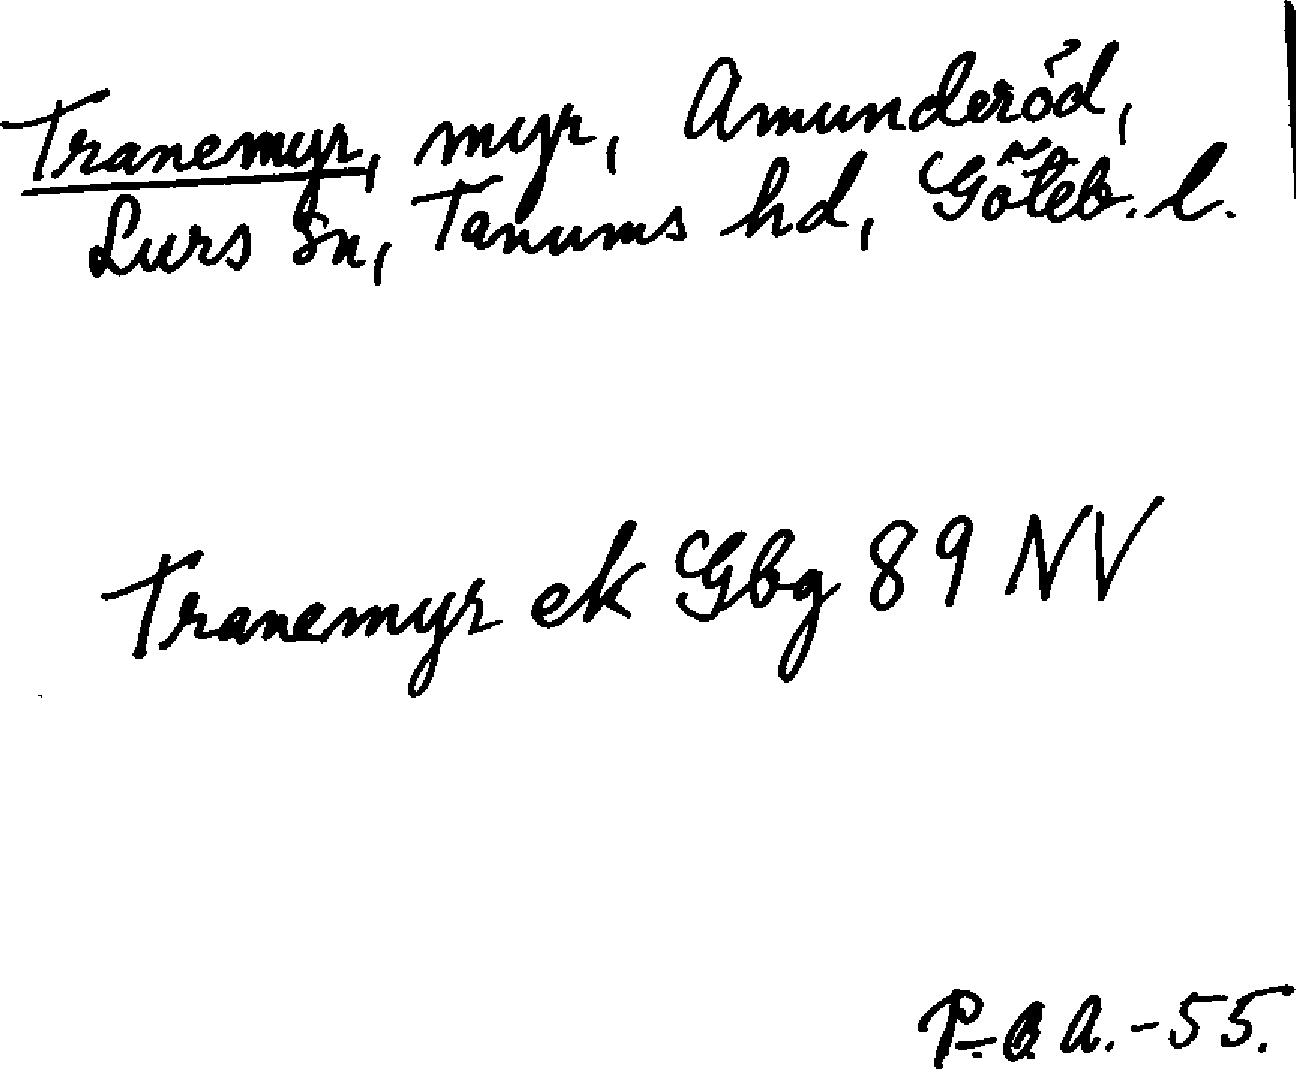 Tranemyr, myr, Amunderöd,
Lurs sn, Tanums hd, Göteb. l.
Tranemyr ek Gbg 89 NV
P-Q A.-55.